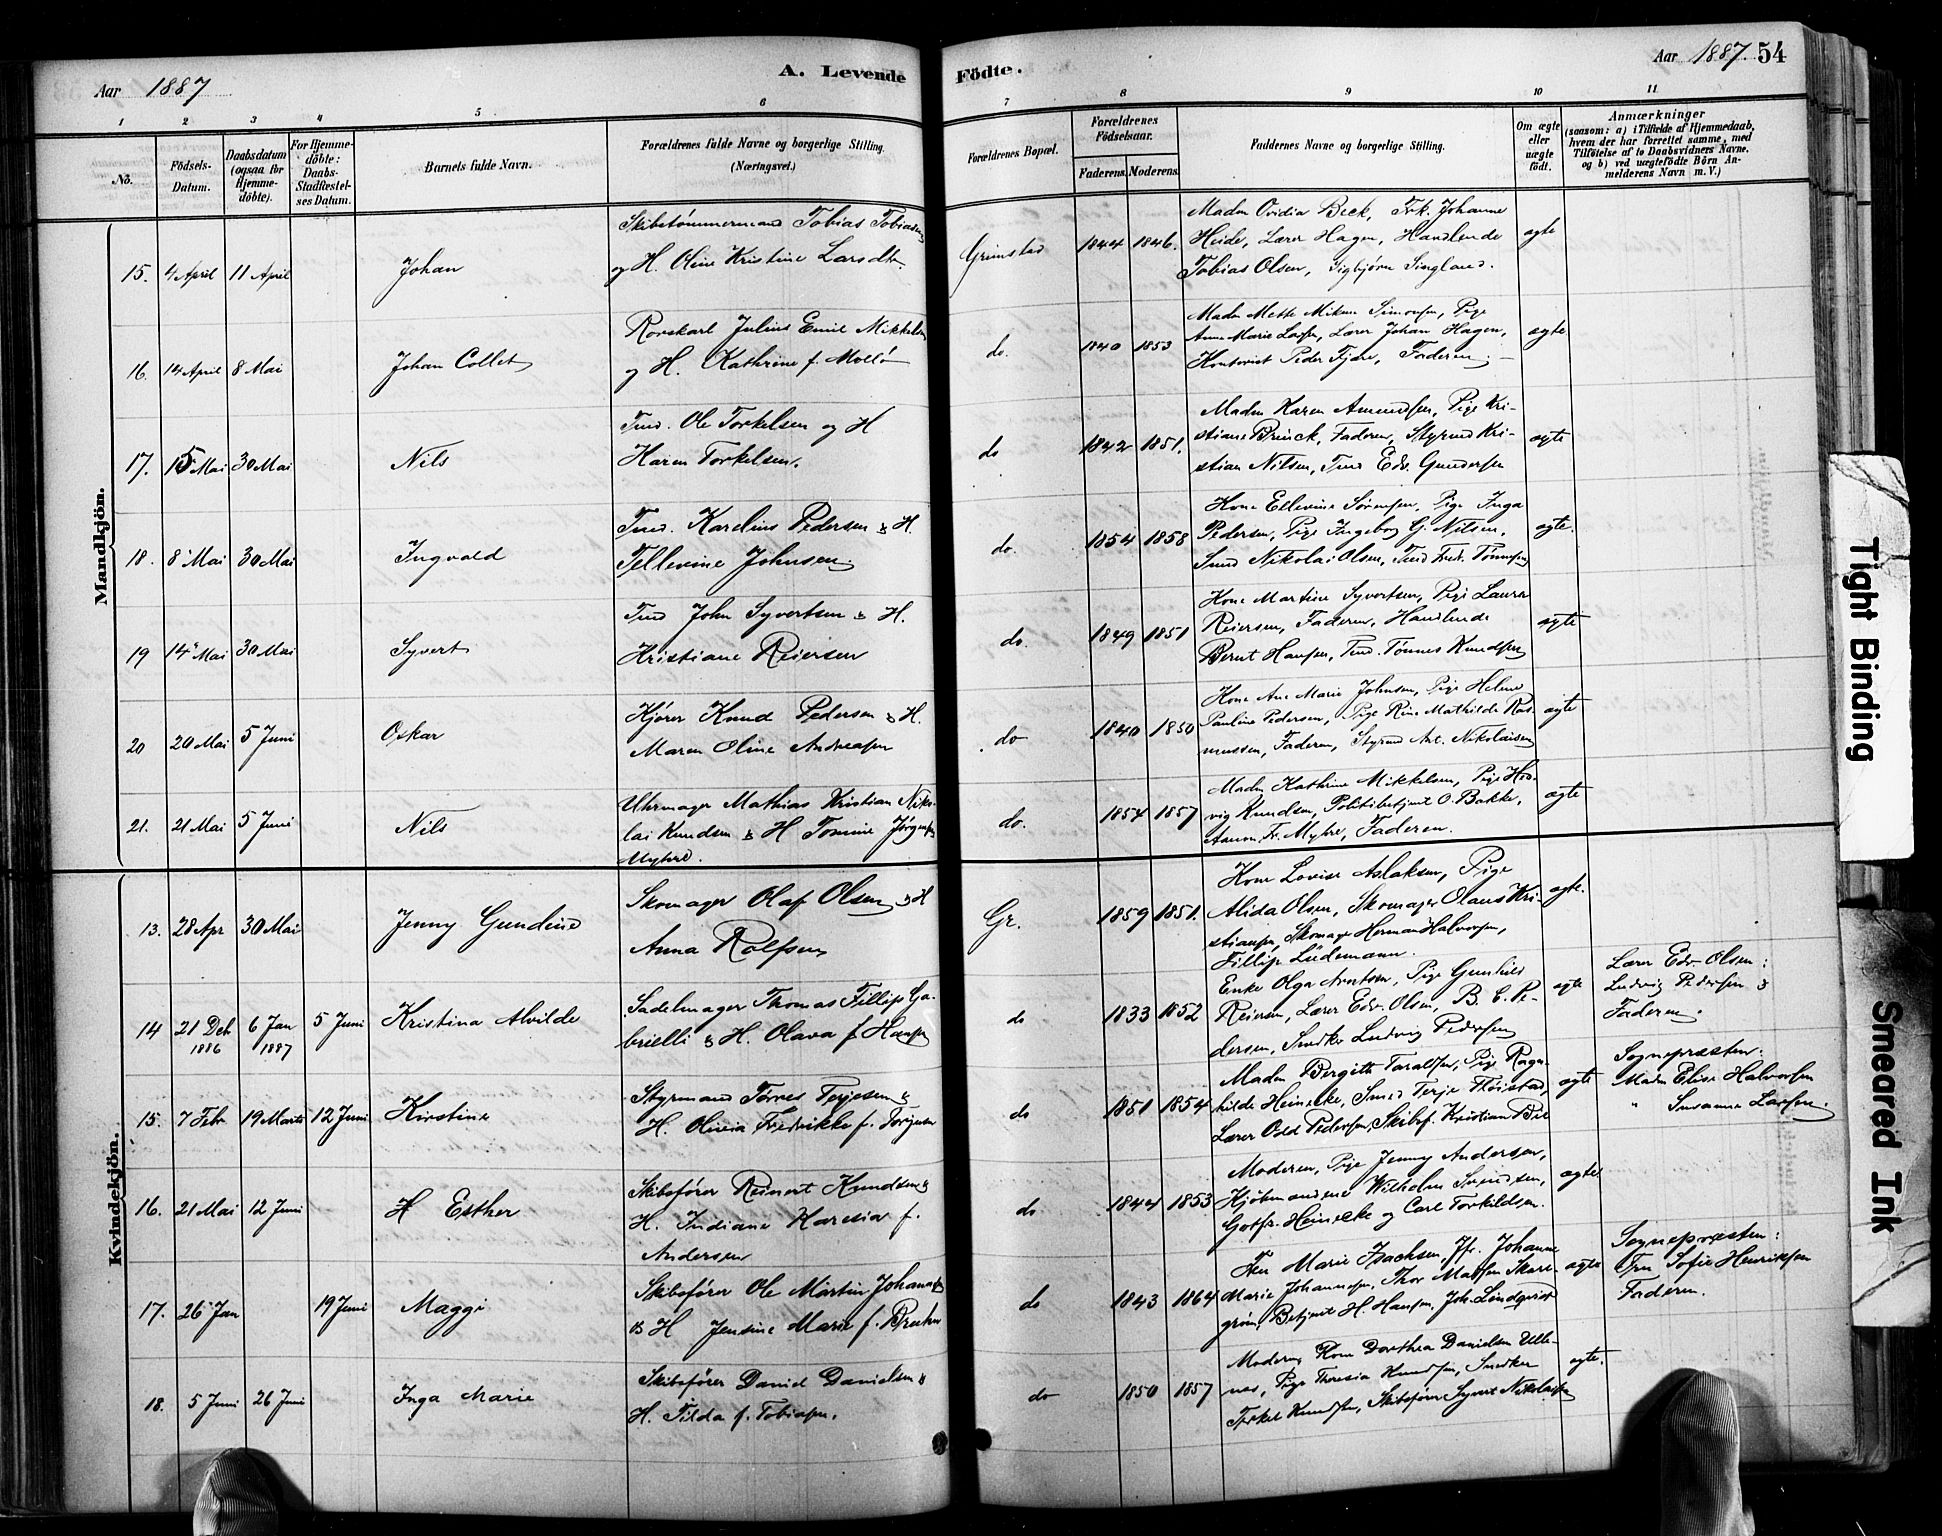 Aar 1887
A. Levende
Födte.
Aar 1887. 54
1 2 3 4 5 6 7 8 9 10 11
No.
Födsels-
Datum.
Daabsdatum
(ogsaa for
Hjemme-
döbte).
For Hjemme-
döbte:
Daabs-
Stadfæstel-
ses Datum.
Barnets fulde Navn.
Forældrenes fulde Navne og borgerlige Stilling.
(Næringsvei.)
Forældrenes Bopæl.
Forældrenes
Födselsaar.
Faderens. Moderens.
Faddernes Navne og borgerlige Stilling.
Om ægte
eller
uægte
födt.
Anmærkninger
(saasom: a) i Tilfælde af Hjemmedaab,
hvem der har forrettet samme, med
Tilföielse af to Daabsvidners Navne,
og b) ved uægtefödte Börn An-
melderens Navn m. V.)
Mandkjön.
15. 4 April 11 April Johan
Skibstømmermand Tobias Tobiasen
og H. Oline Kristine Larsdtr.
Grimstad 1844 1846.
Madm Ovidia Beck, Frk. Johanne
Heide, Lærer Hagen, Handlende
Tobias Olsen, Sigbjørn Singland.
ægte
16. 14 April 8 Mai Johan Collet
Rorskarl Julius Emil Mikkelsen
og H. Kathrine f. Mollø
do. 1840 1853
Madm Mette Simonsen, Pige
Anne Marie Larsen, Lærer Johan Hagen,
Kontorist Peder Fjære, Faderen.
ægte
17. 15 Mai 30 Mai Nils
Tmd. Ole Torkelsen og H
Karen Torkelsen.
do 1842 1851.
Madm Karen Amundsen, Pige Kri-
stiane Brinck, Faderen, Styrmd Kri-
stian Nilsen, Tmd Edv. Gundersen
ægte
18. 8 Mai 30 Mai Ingvald
Tmd. Karelius Pedersen & H.
Tellevine Johnsen.
do. 1854 1858
Kone Ellevine Sørensen, Pige Inga
Pedersen, Pige Ingeborg G. Nilsen,
Smed Nikolai Olsen, Tmd Fredr. Tønnesen
ægte.
19 14 Mai 30 Mai Syvert
Tmd John Syvertsen & H.
Kristiane Reiersen
do. 1849 1851
Kone Martine Syvertsen, Pige Laura
Reiersen, Faderen, Handlende
Bernt Hansen, Tmd. Tønnes Knudsen
ægte
20 20 Mai 5 Juni Oskar
Kjører Knud Pedersen & H.
Maren Oline Andreasen
do 1840 1850
Kone Ane Marie Johnsen, Pige Helene
Pauline Pedersen, Pige Mathilde Ras-
mussen, Faderen, Styrmd Ant. Nikolaisen
ægte
21. 21 Mai 5 Juni Nils
Uhrmager Mathias Kristian Niko-
lai Knudsen & H Tomine Jørgensen
Myhre.
do. 1854 1857
Madm Kathrine Mikkelsen, Pige Hed-
vig Knudsen, Politibetjent O. Bakke,
Fr. Myhre, Faderen.
ægte
Kvindekjön.
13. 28 Apr 30 Mai Jenny Gundine
Skomager Olaf Olsen & H
Anna Rolfsen
Gr. 1859 1851.
Kone Lovise Aslaksen, Pige
Alida Olsen, Skomager Olaus Kri-
stiansen, Skomager Herman Halvorsen,
Fillip Lüdemann.
ægte.
14 21 Deb 1886 6 Jan 1887 5 Juni Kristina Alvilde
Sadelmager Thomas Fillip Ga-
brielli & H. Olava f. Hansen
do 1833 1852
Enke Olga Arntsen, Pige Gunhild
Reiersen, Lærer Edv. Olsen, B. C. Pe-
dersen, Snedker Ludvig Pedersen
ægte
Lærer Edv Olsen:
Ludvig Pedersen &
Faderen.
15. 7 Febr 19 Marts 12 Juni Kirstine
Styrmand Tørres Terjesen &
H. Olivia Fredrikke f. Torjusen
do 1851 1854
Madm Bergitte Taraldsen, Pige Ragn-
hilde Heinecke, Smed Terje Fløistad,
Lærer Odd Pedersen, Skibsf. Kristian
ægte
Sognepræsten:
Madm Elise Halvorsen
" Susanne Larsen.
16. 21 Mai 12 Juni H Esther
Skibsfører Reinert Knudsen &
H. Indiane Karesia f.
Andersen
do 1844 1853
Moderen, Pige Jenny Andersen,
Kjøbmændene Wilhelm Svendsen,
Gotfr. Heinecke og Carl Torkildsen.
ægte
17. 26 Jan 19 Juni Maggi
Skibsfører Ole Martin Johannesen
& H Jensine Marie f. Bruhn
do 1843 1864
Fru Marie Isachsen, Jfr. Johanne
Marie Johannesen, Thor Madsen Skare-
grøm, Betjent H. Hansen, Joh. Lindqvist
ægte
Sognepræsten:
Fru Sofie Henriksen
Faderen.
18. 5 Juni 26 Juni Inga Marie
Skibsfører Daniel Danielsen &
H. Tilda f. Tobiasen.
do 1850 1857
Moderen, Kone Dorthea Danielsen Ulle-
næs, Pige Theresia Knudsen, Snedker
Terkel Knudsen, Skibsfører Syvert Nikolaisen
ægte.
Tight Binding
Smeared Ink